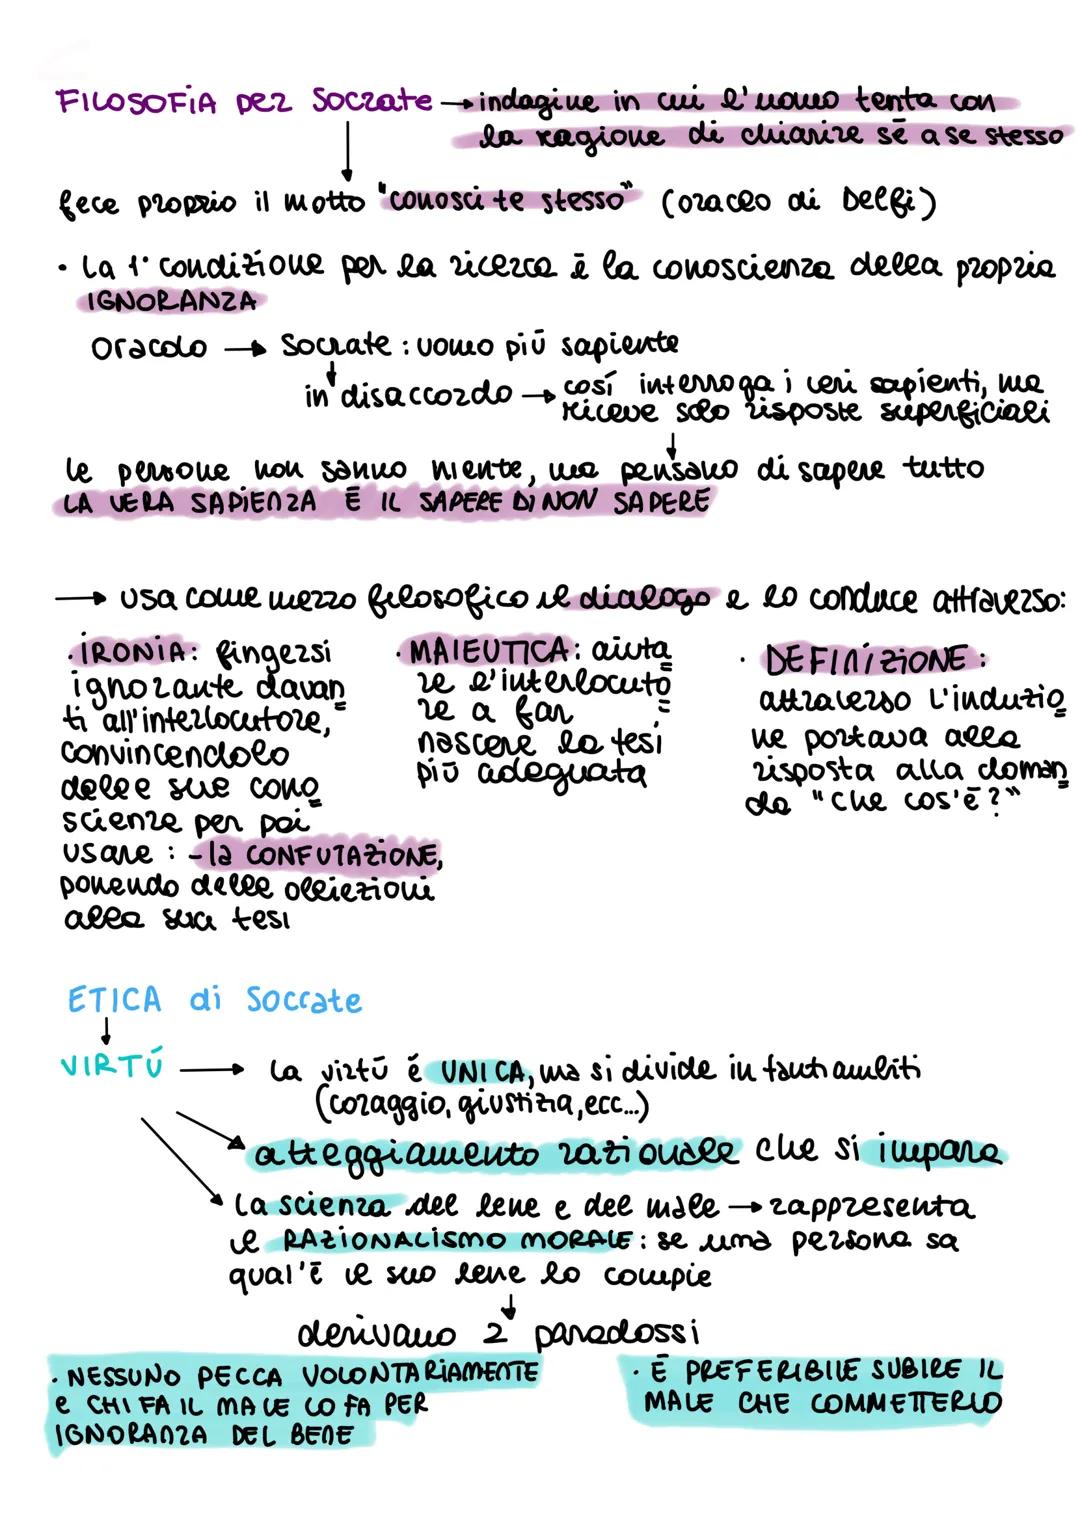 FILOSOFIA PER SOCRATE → indagine in cui l'uomo tenta con
la ragione di chiarire sé a se stesso
fece proprio il motto "conosci te stesso" (oracolo di Delfi)
· La 1° condizione per la ricerca è la conoscienza della propria
IGNORANZA
Oracolo → Socrate: uomo più sapiente
in disaccordo → così interroga i veri sapienti, ma
riceve solo risposte superficiali
le persone non sanno niente, ma pensano di sapere tutto
LA VERA SAPIENZA È IL SAPERE DI NON SAPERE
→ usa come mezzo filosofico il dialogo e lo conduce attraverso:
· IRONIA: fingersi
ignorante davan
ti all'interlocutore,
convincendolo
delle sue cono
scienze per poi
usare: - la CONFUTAZIONE,
ponendo delle obiezioni
alla sua tesi
· MAIEUTICA: aiuta
re l'interlocuto
re a far
nascere la tesi
più adeguata
· DEFINIZIONE:
attraverso l'induzio
ne portava alla
risposta alla doman
da "che cos'è?"
ETICA di Socrate
VIRTÚ → La virtù é UNICA, ma si divide in tanti ambiti
(coraggio, giustizia, ecc...)
atteggiamento razionale che si impara
La scienza del bene e del male → rappresenta
il RAZIONALISMO MORALE: se una persona sa
qual'è il suo bene lo compie
derivano 2 paradossi
· NESSUNO PECCA VOLONTARIAMENTE
e CHI FA IL MALE LO FA PER
IGNORANZA DEL BENE
· È PREFERIBILE SUBIRE IL
MALE CHE COMMETTERLO